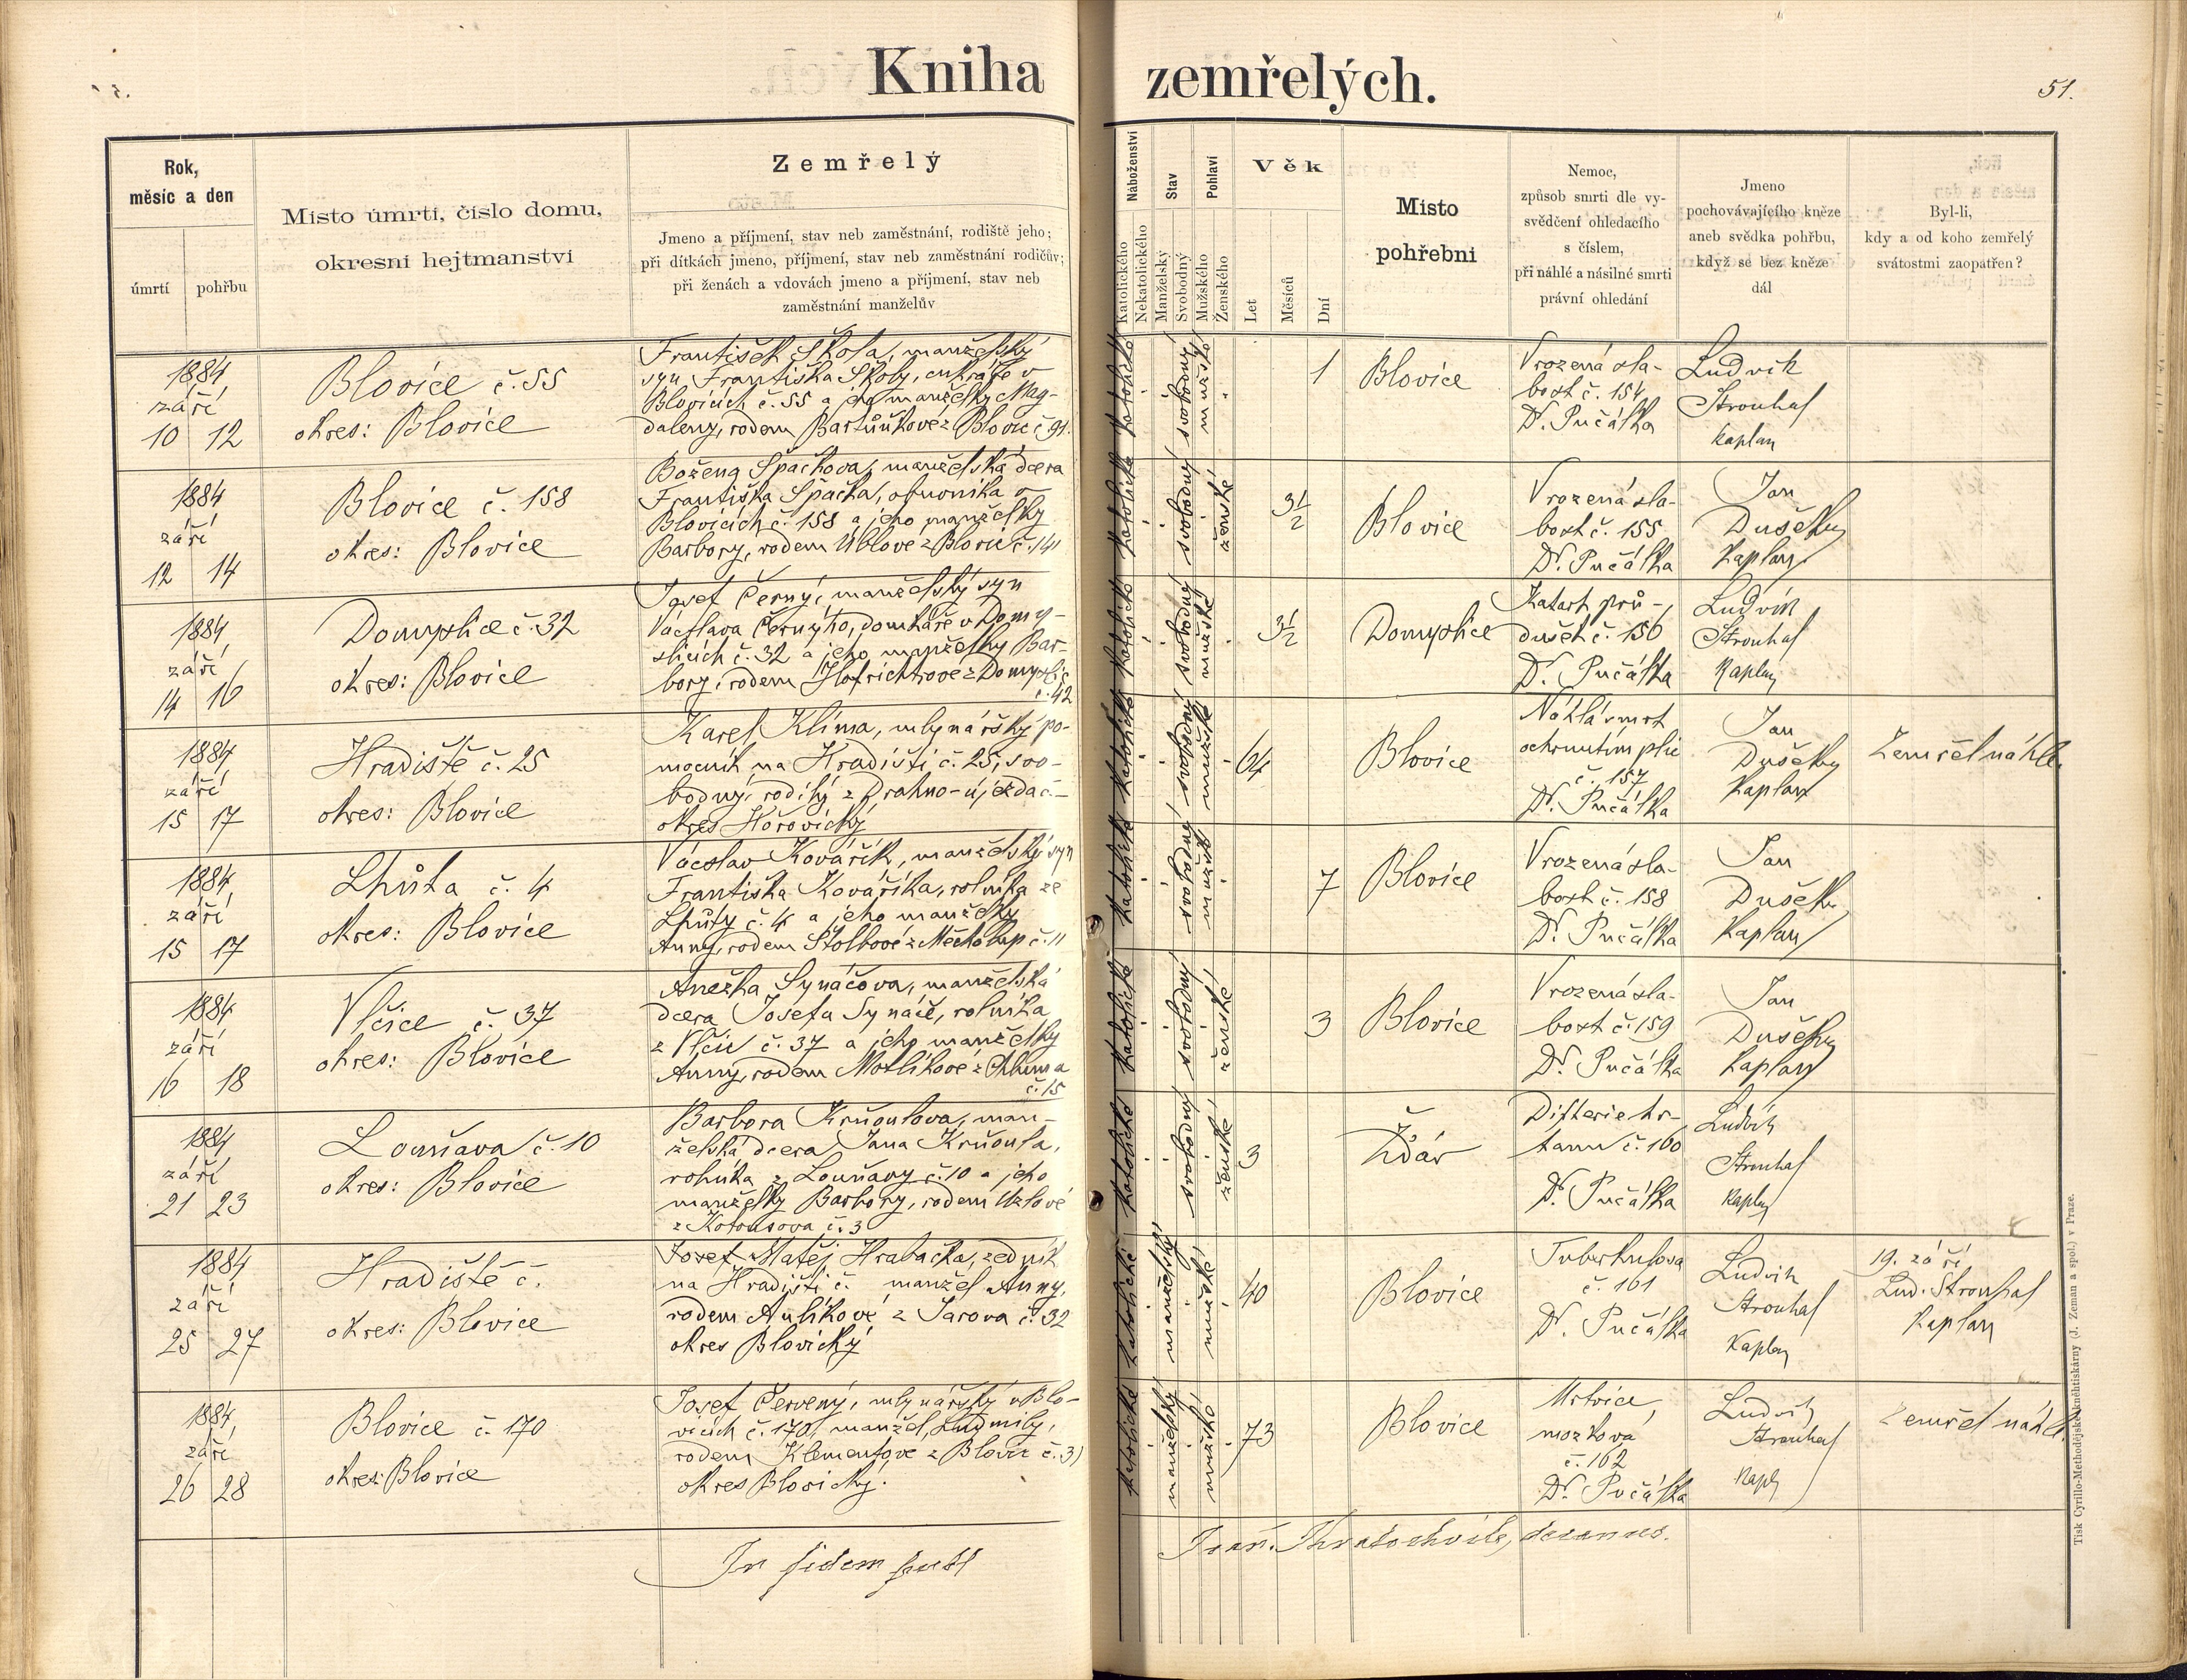 Kniha zemřelých.
51.
Rok,
měsíc a den
úmrtí
pohřbu
Místo úmrtí, číslo domu,
okresní hejtmanství
Zemřelý
Jmeno a příjmení, stav neb zaměstnání, rodiště jeho;
při dítkách jmeno, příjmení, stav neb zaměstnání rodičův;
při ženách a vdovách jmeno a příjmení, stav neb
zaměstnání manželův
Náboženství
Katolického
Nekatolického
Stav
Manželský
Svobodný
Pohlaví
Mužského
Ženského
Věk
Let
Měsíců
Dní
Místo
pohřební
Nemoc,
způsob smrti dle vy-
svědčení ohledacího
s číslem,
při náhlé a násilné smrti
právní ohledání
Jmeno
pochovávajícího kněze
aneb svědka pohřbu,
když se bez kněze
dál
Byl-li,
kdy a od koho zemřelý
svátostmi zaopatřen?
1884
září
10 12
Blovice č. 55
okres: Blovice
František Škola, manželský
syn Františka Školy, cukráře v
Blovicích č. 55 a jeho manželky Mag-
daleny, rodem Bartůňkové z Blovic č 91.
katolické
svobodný
mužské
1
Blovice
Vrozená sla-
bost č. 154
Dr. Pučálka
Ludvík
Strouhal
kaplan
1884
září
12 14
Blovice č. 158
okres: Blovice
Božena Špačkova, manželská dcera
Františka Špačka, obuvníka v
Blovicích č. 158 a jeho manželky
Barbory, rodem Üblové z Blovic č. 141
katolické
svobodný
ženské
3 1/2
Blovice
Vrozená sla-
bost č. 155
Dr. Pučálka
Jan
Dušek
Kaplan
1884
září
14 16
Domyslice č. 32
okres: Blovice
Josef Černý, manželský syn
Václava Černýho, domkáře v Domy-
slicích č. 32 a jeho manželky Bar-
bory, rodem Hofrichtrové z Domyslic
č. 42
katolické
svobodný
mužské
3 1/2
Domyslice
Katarh prů-
dušek č. 156
Dr. Pučálka
Ludvík
Strouhal
Kaplan
1884
září
15 17
Hradiště č. 25
okres: Blovice
Karel Klíma, mlynářský po-
mocník na Hradišti č. 25, svo-
bodný, rodilý z Drahno-újezda č. –
okres Hořovický
katolické
svobodný
mužské
64
Blovice
Náhlá smrt
ochrnutím plic
č. 157
Dr. Pučálka
Jan
Dušek
Kaplan
Zemřel náhle
1884
září
15 17
Lhůta č. 4
okres: Blovice
Václav Kovářík, manželský syn
Františka Kováříka, rolníka ze
Lhůty č. 4 a jeho manželky
Anny, rodem Štolbové z Měcholup č. 11
katolické
svobodný
mužské
7
Blovice
Vrozená sla-
bost č. 158
Dr. Pučálka
Jan
Dušek
Kaplan
1884
září
16 18
Vlčice č. 37
okres: Blovice
Anežka Synáčova, manželská
dcera Josefa Synáče, rolníka
z Vlčic č. 37 a jeho manželky
Anny, rodem Motlíkové z Chluma
č. 15
katolické
svobodný
ženské
3
Blovice
Vrozená sla-
bost č. 159
Dr. Pučálka
Jan
Dušek
Kaplan
1884
září
21 23
Louňava č. 10
okres: Blovice
Barbora Krňoulova, man-
želská dcera Jana Krňoula,
rolníka z Louňavy č. 10 a jeho
manželky Barbory, rodem Uzlové
z Kotousova č. 3
katolické
svobodný
ženské
3
Ždár
Difterie hr-
tanu č. 160
Dr. Pučálka
Ludvík
Strouhal
kaplan
1884
září
25 27
Hradiště č.
okres: Blovice
Josef Matěj Hrabačka, zedník
na Hradišti č. manžel Anny,
rodem Aulíkové z Jarova č. 32
okres Blovický
katolické
manželský
mužské
40
Blovice
Tuberkulosa
č. 161
Dr. Pučálka
Ludvík
Strouhal
Kaplan
19. září
Lud. Strouhal
Kaplan
1884
září
26 28
Blovice č. 170
okres Blovice
Josef Červený, mlynářský v Blo-
vicích č. 170, manžel Ludmily,
rodem Klementove z Blovic č. 3)
okres Blovický.
katolické
manželský
mužské
73
Blovice
Mrtvice
mozková
č. 162
Dr. Pučálka
Ludvík
Strouhal
Kapl
Zemřel náhle
In fidem publ
Fran. Kratochvile, decanus.
Tisk Cyrillo-Methodějské kněhtiskárny (J. Zeman a spol.) v Praze.